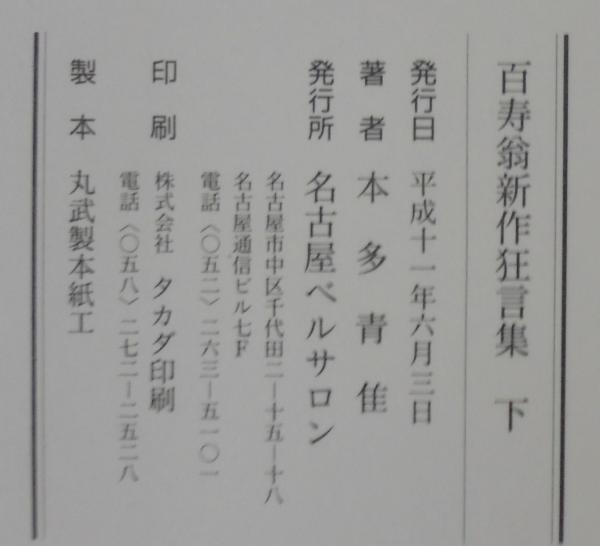 百寿翁新作狂言集　下
発行日　平成十一年六月三日
著者　本多青佳
発行所　名古屋ベルサロン
名古屋市中区千代田二―十五―十八
名古屋通信ビル七F
電話〈〇五二〉二六三―五一〇一
印刷　株式会社　タカダ印刷
電話〈〇五八〉二七二―二五二八
製本　丸武製本紙工